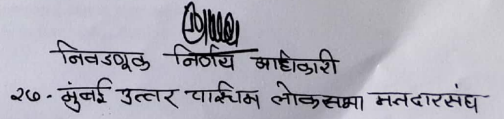 निवडणूक निर्णय अधिकारी
२७- मुंबई उत्तर पश्चिम लोकसभा मतदारसंघ